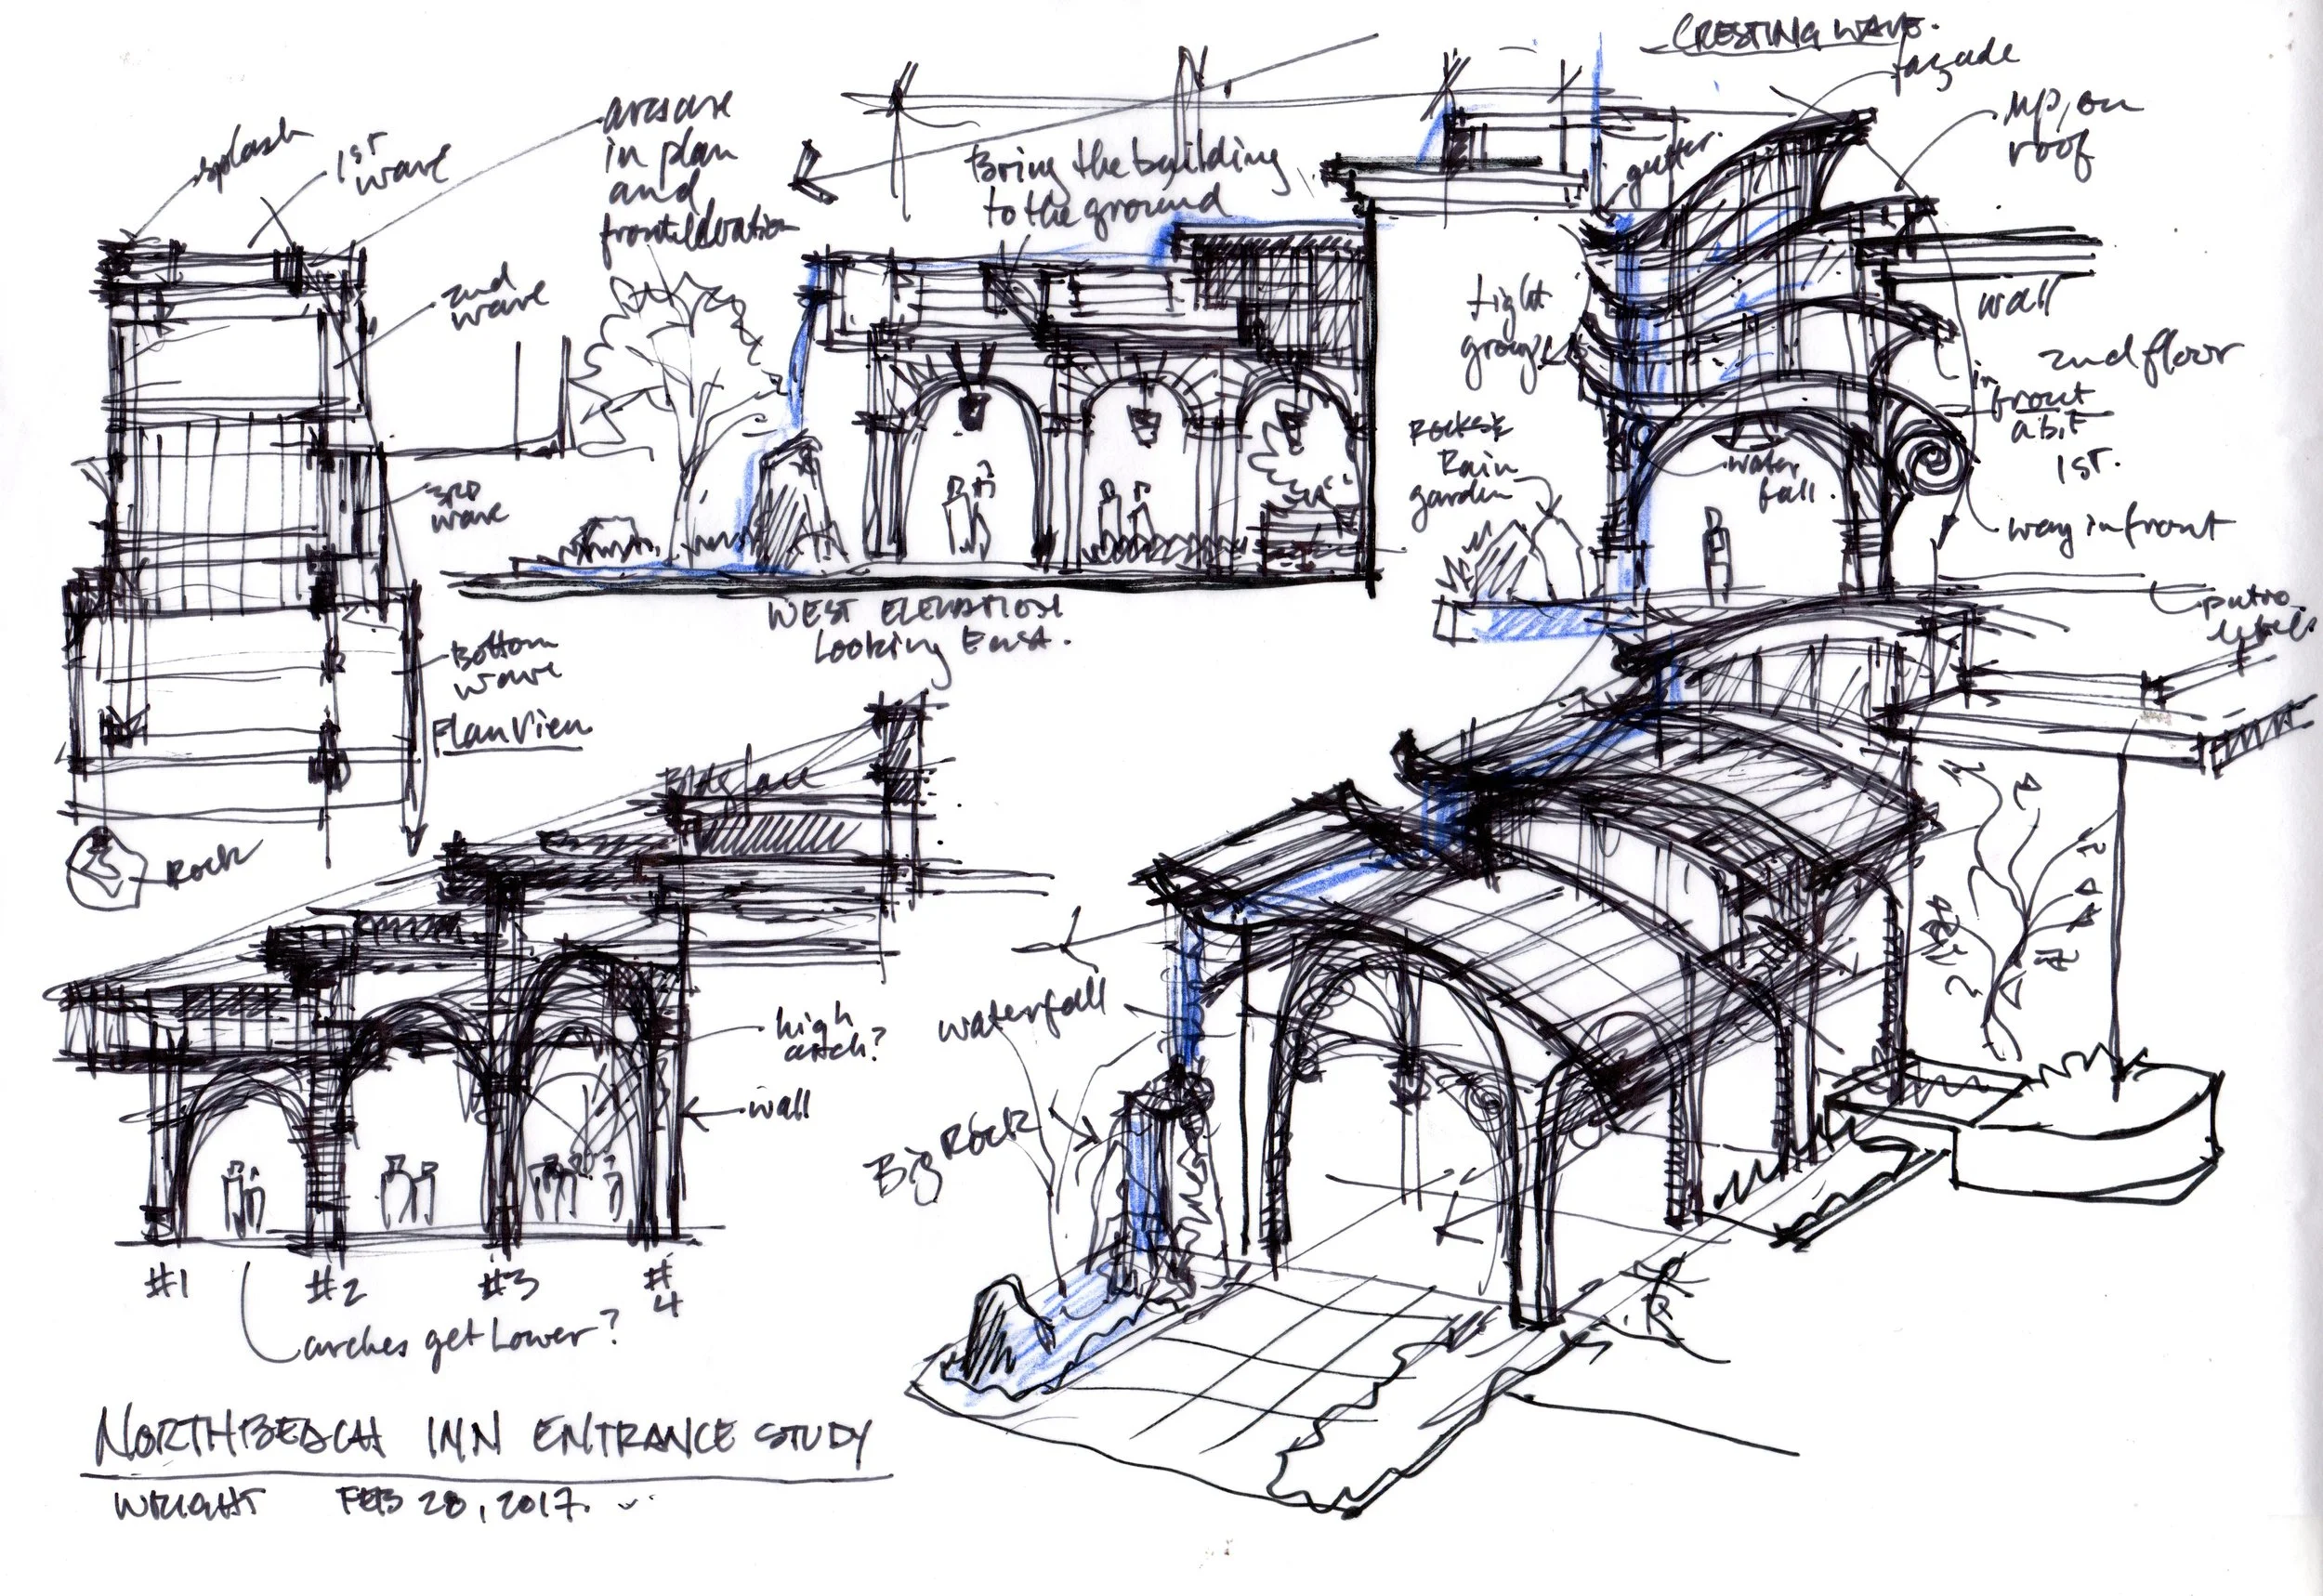 CRESTING WAVE.
façade
up, on
roof
splash
1ST
wave
arcs are
in plan
and
front elevation
Bring the building
to the ground
gutter
2nd
wave
wall
tight
group
2nd floor
in
front
a bit
1ST.
Rocks &
Rain
garden
water
fall.
way in front
3RD
wave
patio
level.
WEST ELEVATION
Looking East.
Bottom
wave
Plan View
Bldg face
Rock
high
arch?
waterfall
wall
Big Rock
#1
#2
#3
#
4
arches get lower?
NORTHBEACH INN ENTRANCE STUDY
WRIGHT FEB 28, 2017.